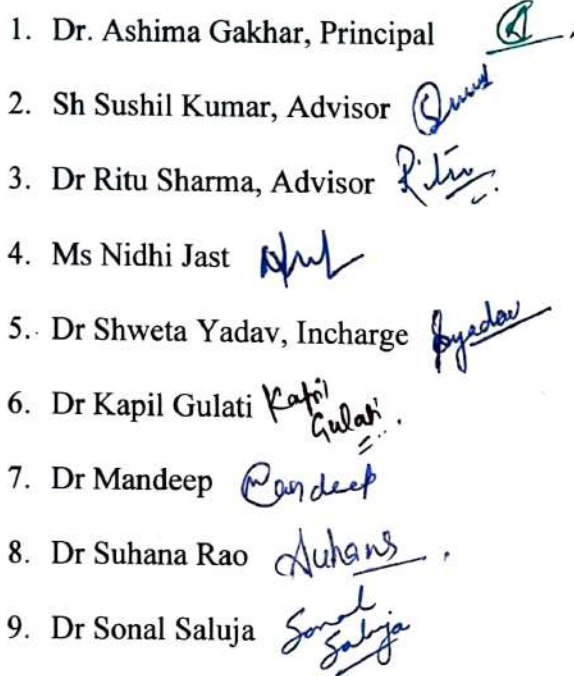 1. Dr. Ashima Gakhar, Principal
2. Sh Sushil Kumar, Advisor
3. Dr Ritu Sharma, Advisor Ritu
4. Ms Nidhi Jast
5. Dr Shweta Yadav, Incharge Syadav
6. Dr Kapil Gulati Kapil Gulati
7. Dr Mandeep Mandeep
8. Dr Suhana Rao Suhana
9. Dr Sonal Saluja Sonal Saluja